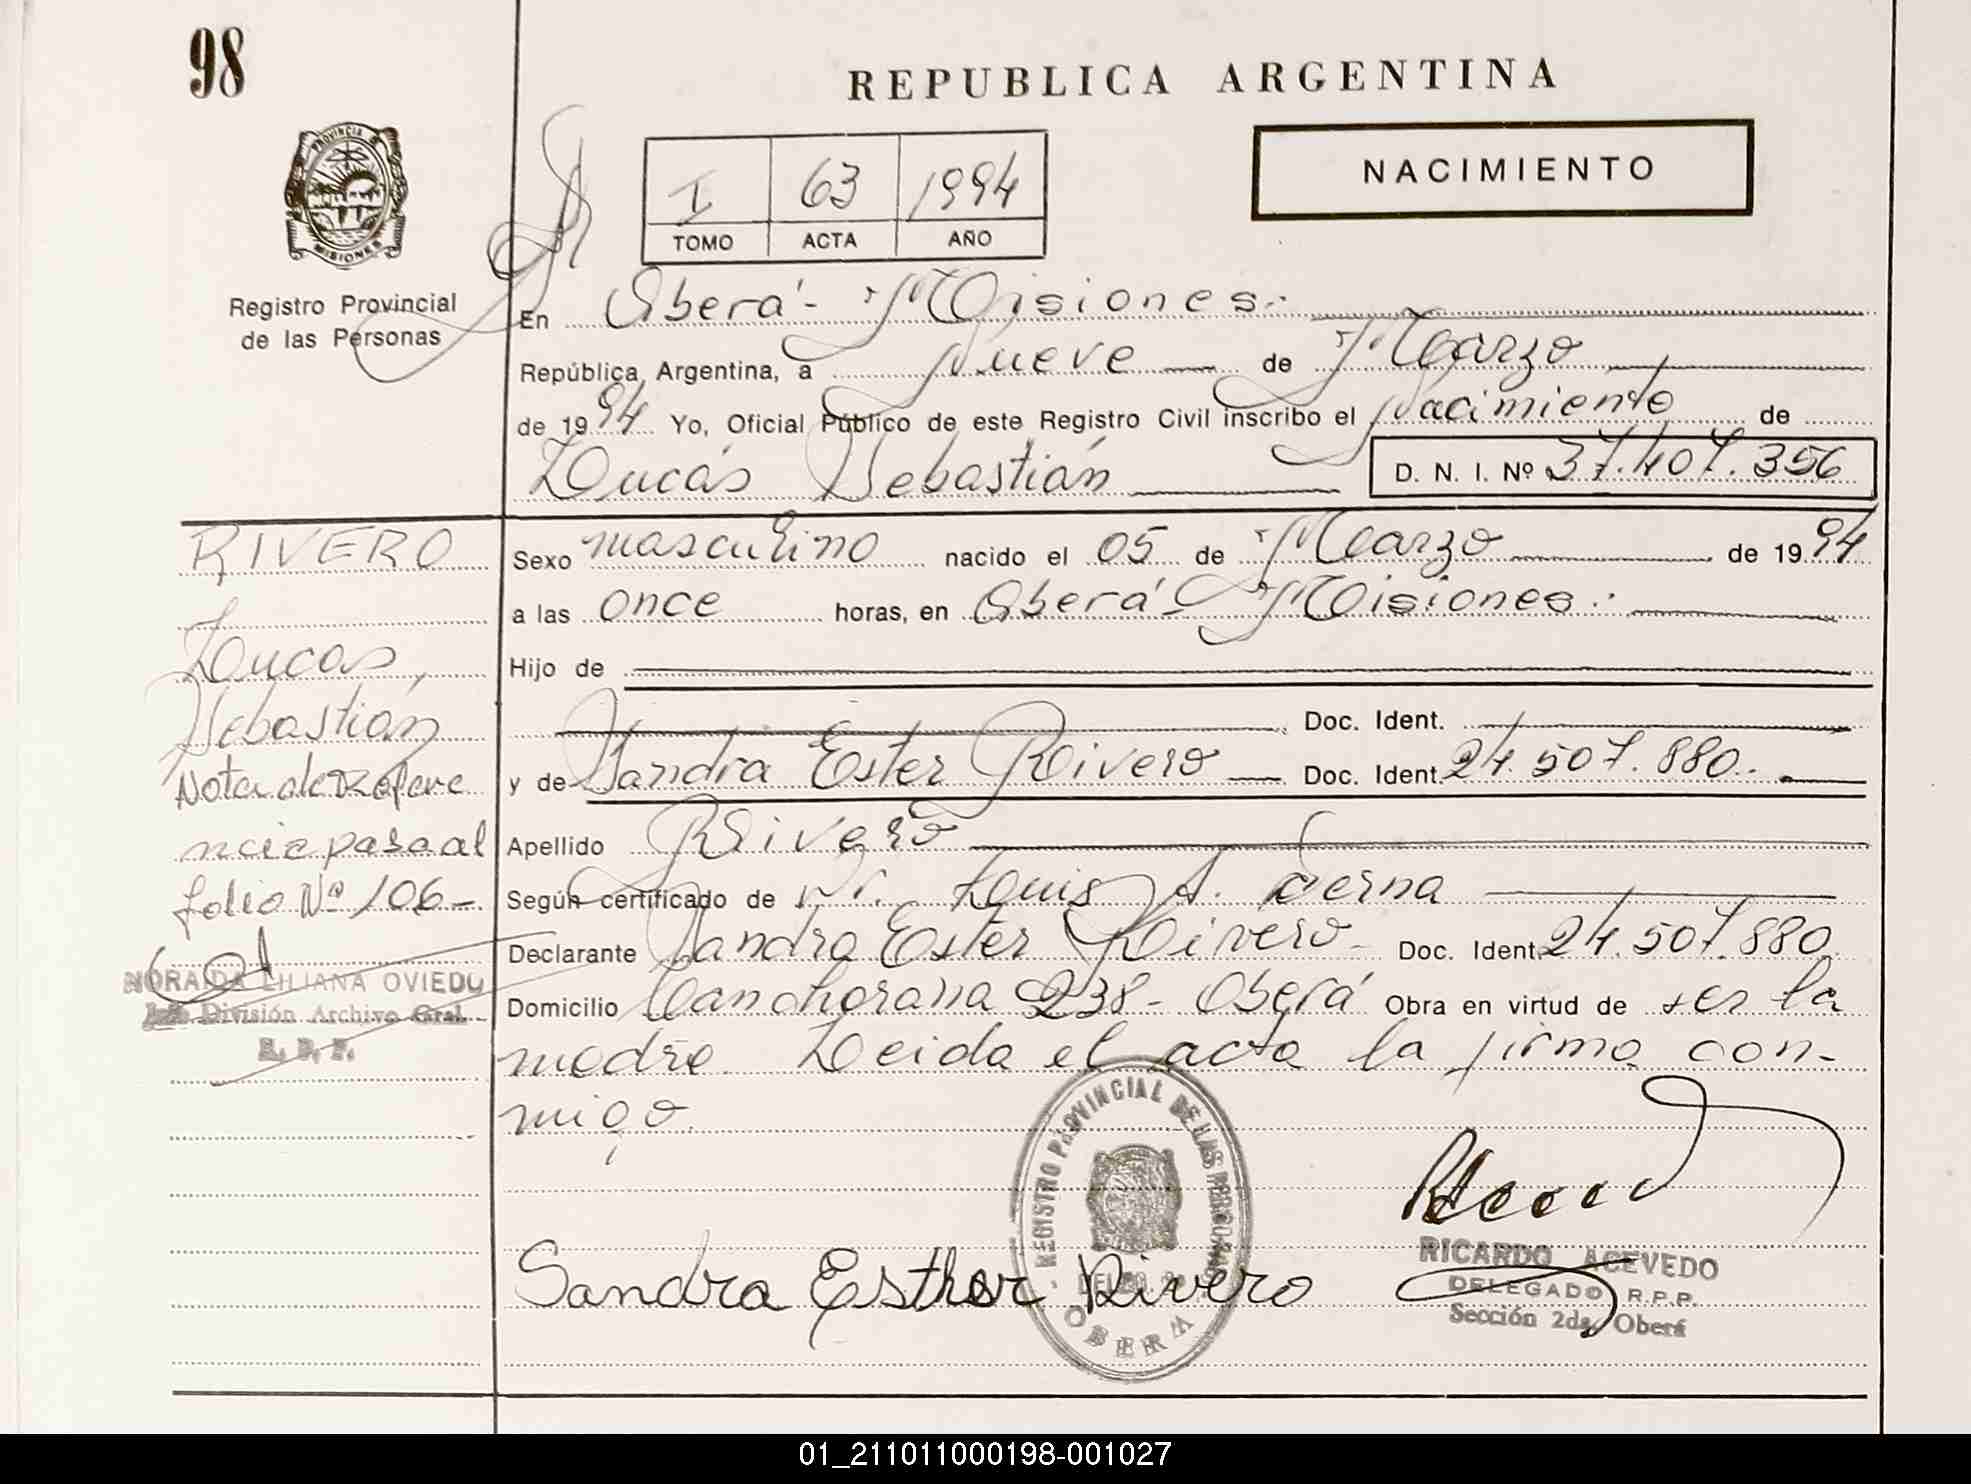 98
REPUBLICA ARGENTINA
NACIMIENTO
I 63 1994
TOMO ACTA AÑO
PROVINCIA DE
MISIONES
Registro Provincial
de las Personas
En Oberá - Misiones.-
República Argentina, a Nueve de Marzo
de 1994 Yo, Oficial Público de este Registro Civil inscribo el Nacimiento de
Lucas Sebastián D. N. I. Nº 37.407.356
RIVERO
Lucas,
Sebastián
Nota de Refere
ncia pasa al
folio Nº 106-
NORAIDA LILIANA OVIEDO
Jefe División Archivo Gral.
R. P. P.
Sexo masculino nacido el 05 de Marzo de 1994
a las once horas, en Oberá - Misiones.-
Hijo de
Doc. Ident.
y de Sandra Ester Rivero Doc. Ident. 24.507.880.-
Apellido Rivero
Según certificado de Dr. Luis A. Serna
Declarante Sandra Ester Rivero - Doc. Ident. 24.507.880
Domicilio 238 - Oberá Obra en virtud de ser la
madre. Leida el acta la firma con-
migo.
REGISTRO PROVINCIAL DE LAS PERSONAS
OBERA
Sandra Esther Rivero
RICARDO ACEVEDO
DELEGADO R.P.P.
Sección 2da. Oberá
01_211011000198-001027